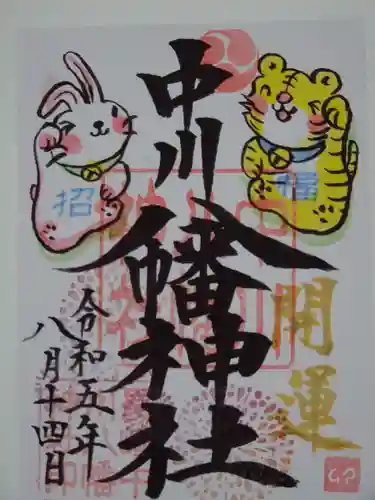 中川八幡神社
招
福
開運
令和五年
八月十四日